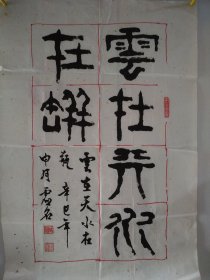 雲在天水
在瓶
雲在天水在
瓶 辛巳年
月